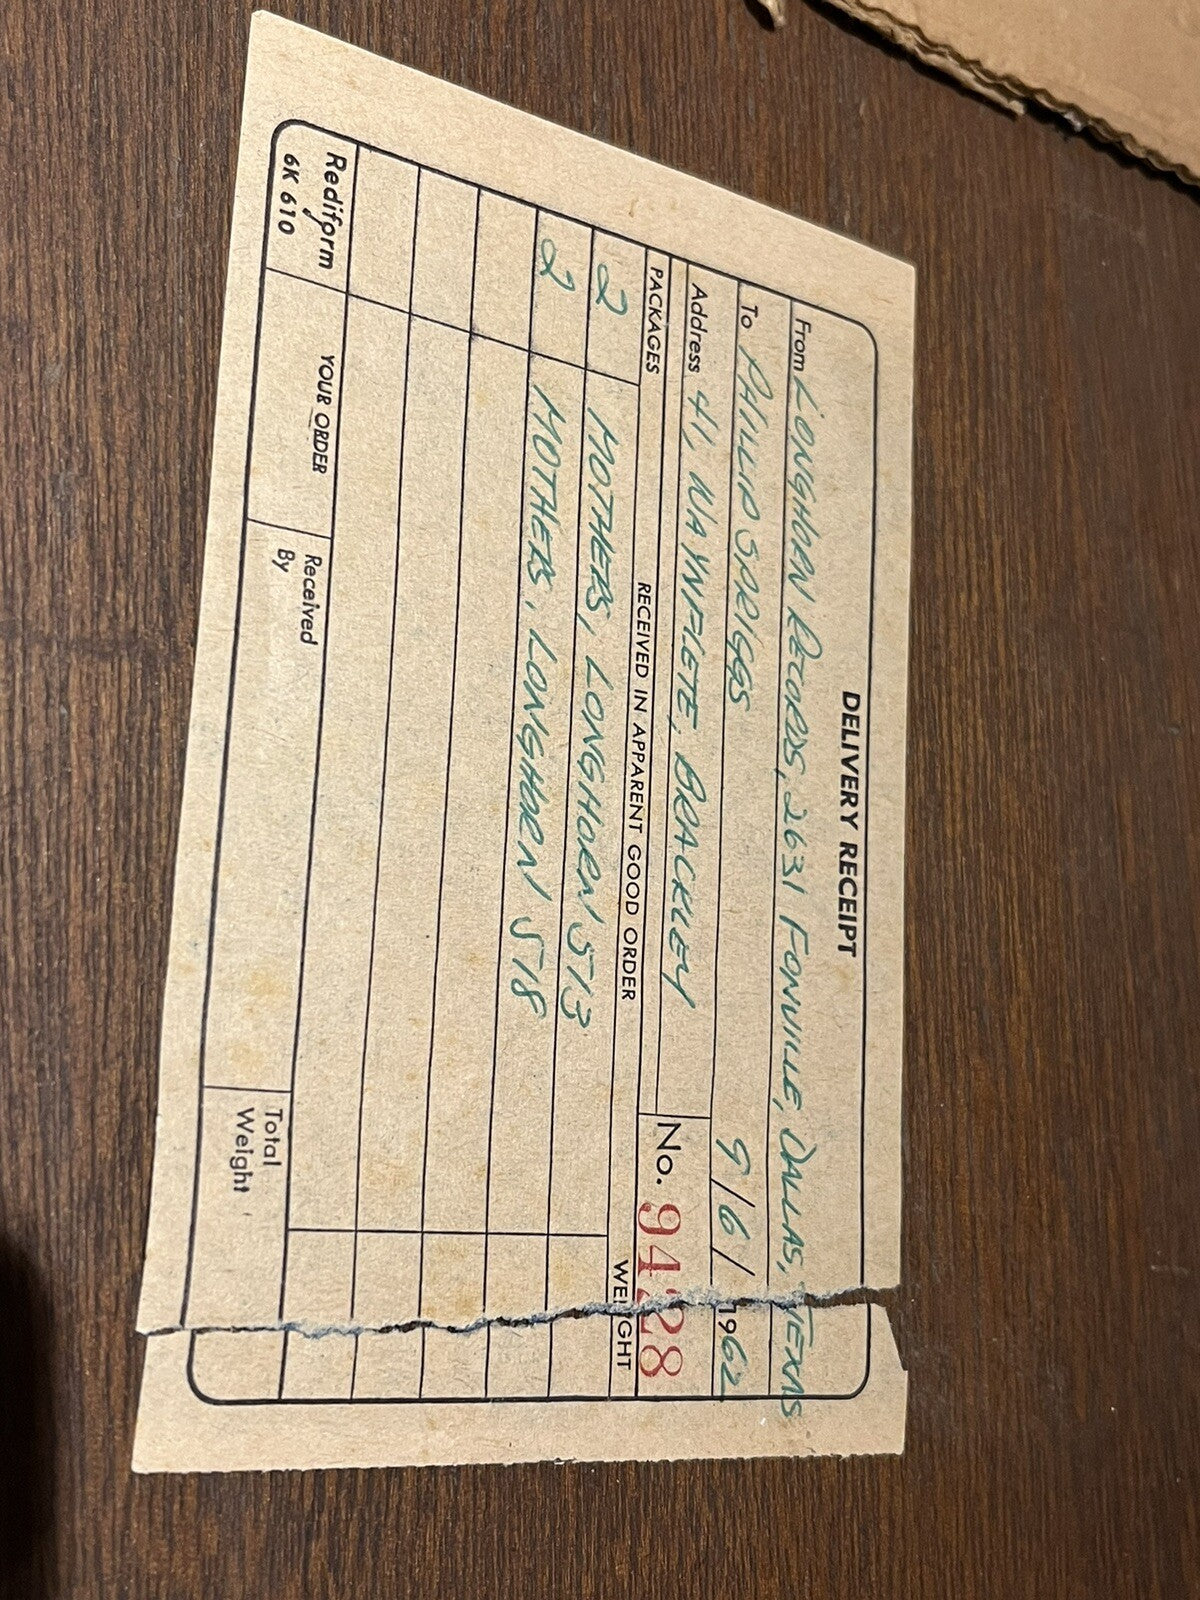 DELIVERY RECEIPT
From LONGHORN RECORDS, 2631 FONVILLE, DALLAS, TEXAS
To PHILLIP SPRIGGS 9/6/1962
Address 41, WAYNFLETE, BRACKLEY
No. 9428
PACKAGES RECEIVED IN APPARENT GOOD ORDER WEIGHT
2 MOTHERS, LONGHORN 513
2 MOTHERS, LONGHORN 518
Rediform YOUR ORDER Received Total
6K 610 By Weight